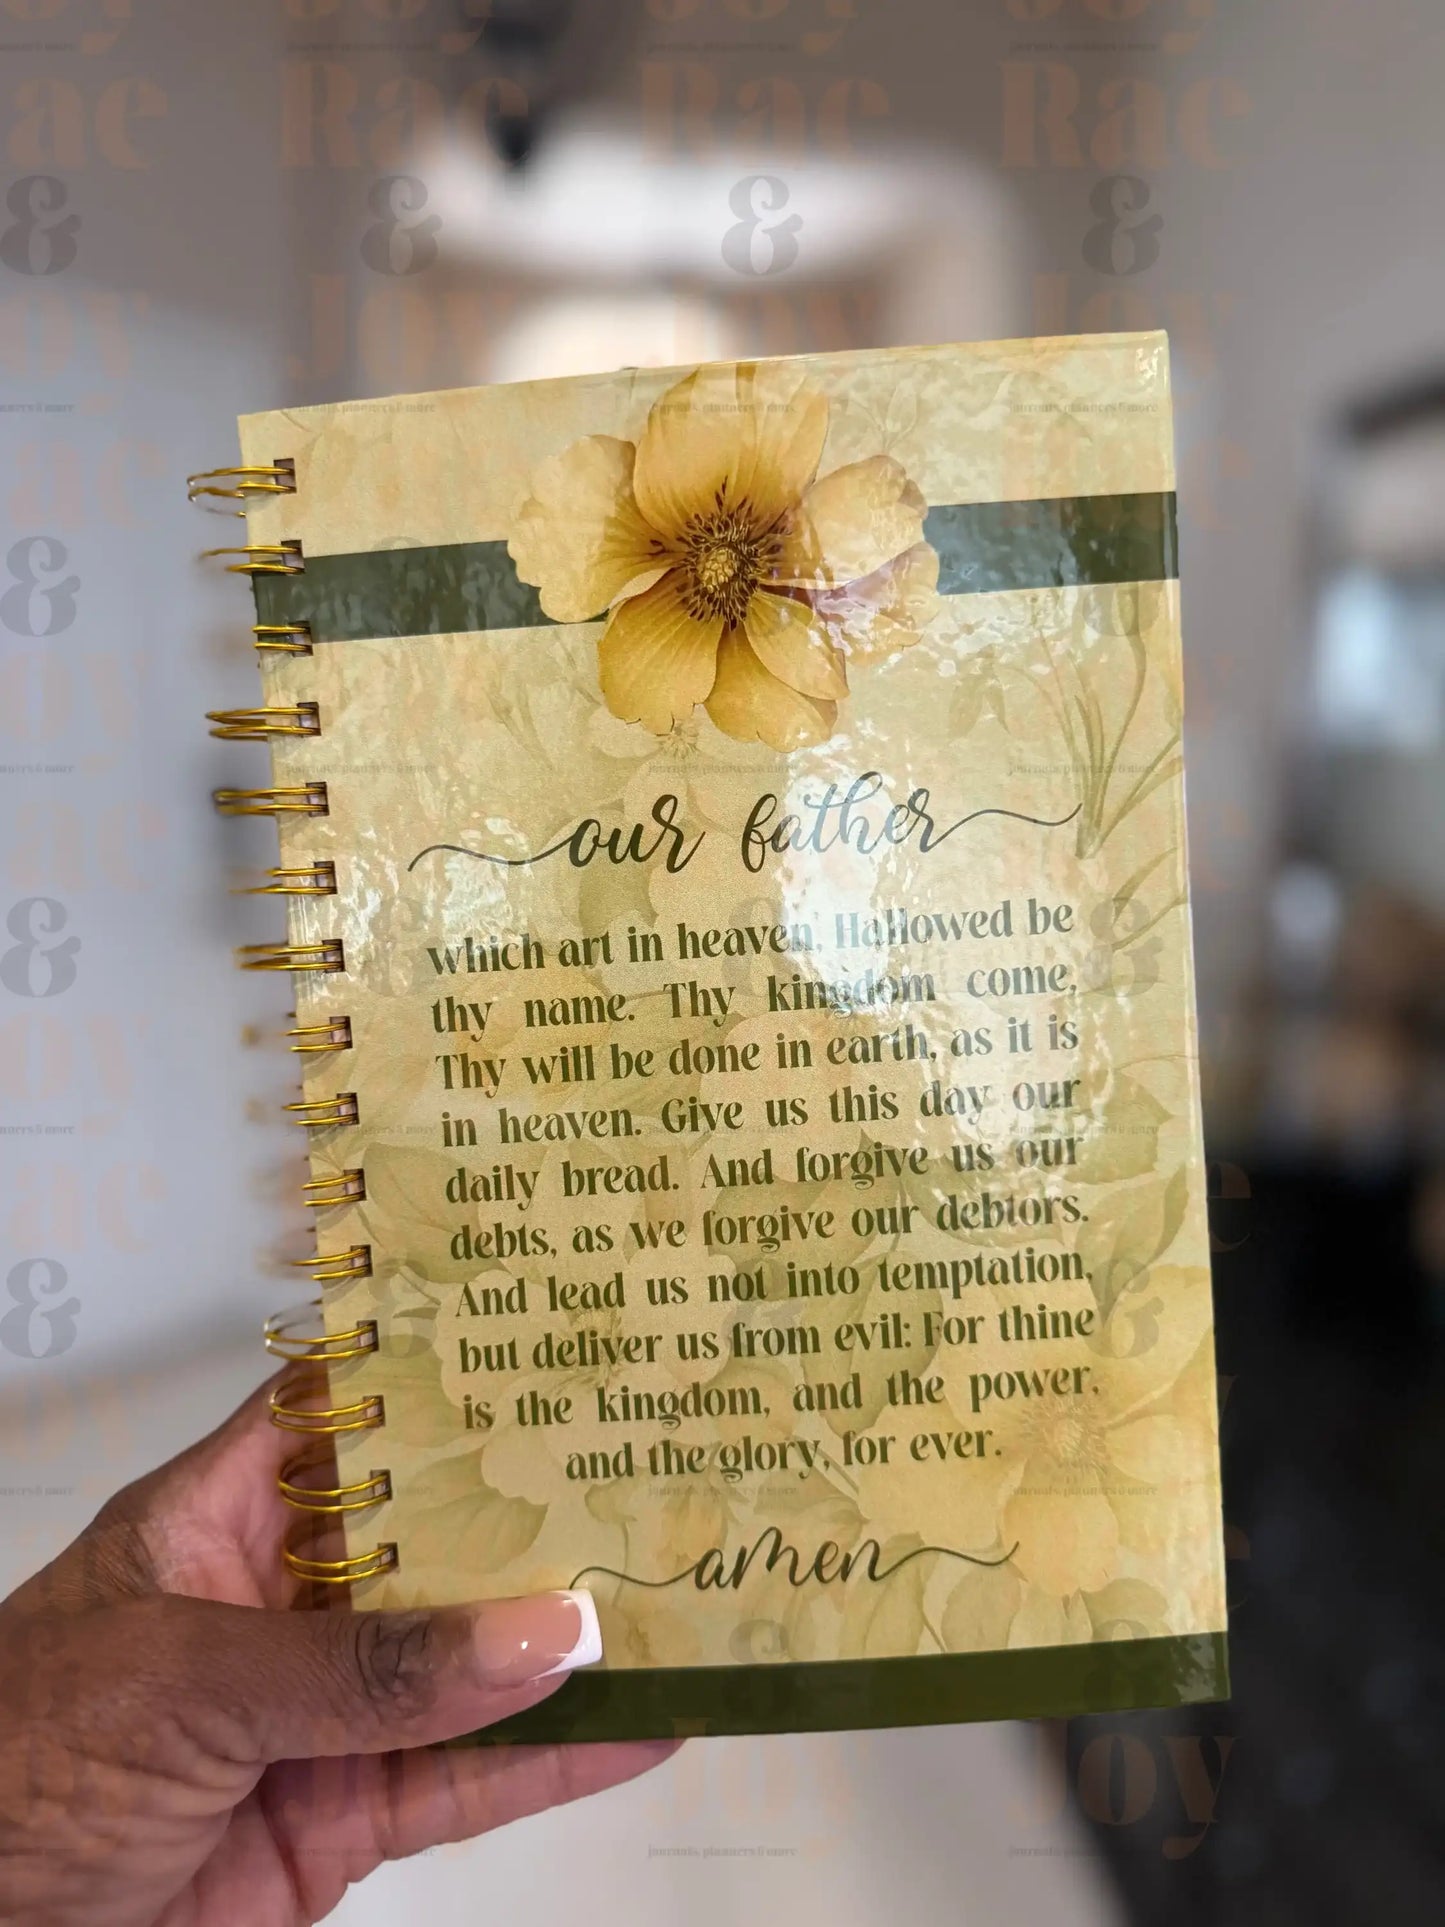 our father
which art in heaven, Hallowed be
thy name. Thy kingdom come,
Thy will be done in earth, as it is
in heaven. Give us this day our
daily bread. And forgive us our
debts, as we forgive our debtors.
And lead us not into temptation,
but deliver us from evil: For thine
is the kingdom, and the power,
and the glory, for ever.
amen
Rae
&
Joy
journals, planners & more